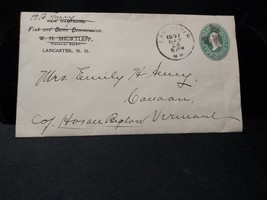 H. F. Henry
NEW HAMPSHIRE
Fish and Game Commission.
W. H. SHURTLEFF,
Financial Agent,
LANCASTER, N. H.
LANCASTER
1897
5 PM
N.H.
Mrs. Emily H. Henry,
Canaan,
c/o Horace Bigelow Vermont